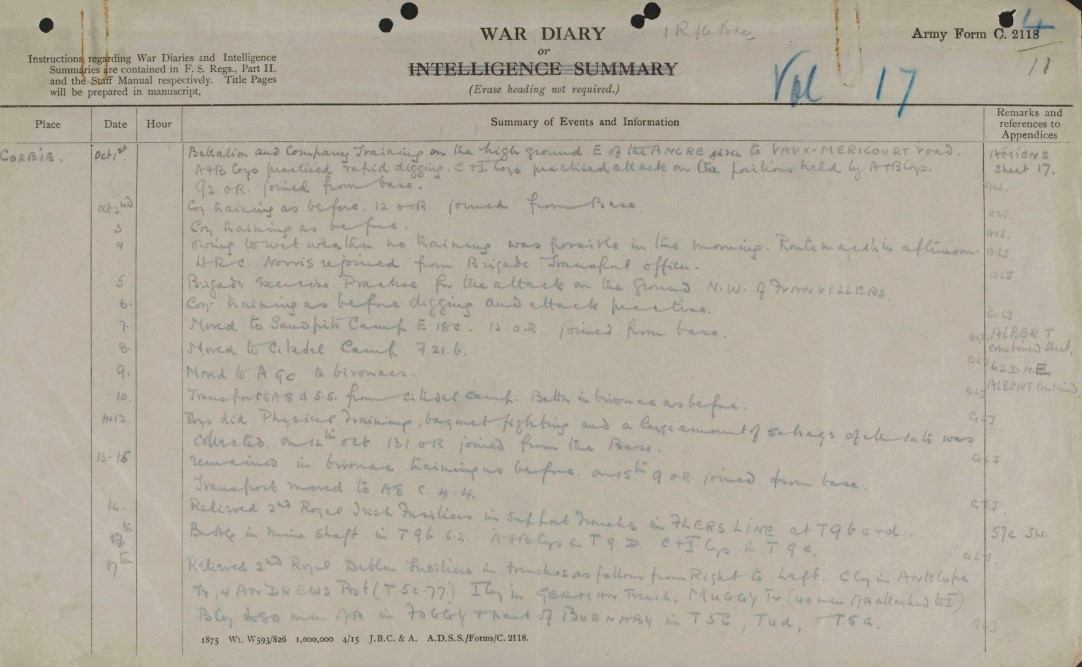 WAR DIARY
or
INTELLIGENCE SUMMARY
(Erase heading not required.)
Army Form C. 2118
Instructions regarding War Diaries and Intelligence
Summaries are contained in F. S. Regs., Part II.
and the Staff Manual respectively. Title Pages
will be prepared in manuscript.
Vol 17
Place
Date
Hour
Summary of Events and Information
Remarks and
references to
Appendices
CORBIE. Oct 1st Battalion and Company Training on the high ground E of the ANCRE river to VAUX-MERICOURT road. AMIENS
A+B Coys practised rapid digging. C+I Coys practised attack on the positions held by A+B Coys. Sheet 17.
92 O.R. joined from base.
Oct 2nd Coy training as before. 12 O.R. joined from Base.
3 Coy training as before.
4 Owing to wet weather no training was possible in the morning. Route march in afternoon.
H.R.C. Norris rejoined from Brigade Transport officer.
5 Brigade Exercise. Practice for the attack on the ground N.W. of FRANVILLERS.
6. Coy training as before digging and attack practice.
7. Moved to Sandpits Camp E 18 c. 12 O.R. joined from base. ALBERT
8 Moved to Citadel Camp F 21. b. combined sheet.
9. Moved to A 9 c to bivouacs. 62D N.E.
10. Transport from Citadel Camp. Battn in bivouac as before. ALBERT combined
11+12 Coys did Physical Training, bayonet fighting and a large amount of salvage of all sorts was
collected. on 12th Oct 131 O.R joined from the Base.
13-15 remained in bivouac training as before. on 15th 9 O.R. joined from base.
Transport moved to A8 C. 4.4.
16. Relieved 2nd Royal Irish Fusiliers in support trenches in FLERS LINE at T 9 b c+d. 57c SW.
in mine shaft in T 9 b 6.2. A+B Coys in T 9 D C+I Coys in T 9 c.
17th Relieved 2nd Royal Dublin Fusiliers in trenches as follows from Right to Left. C Coy in Antelope
Tr, + ANDREWS Post (T 5 c. 7.7.) I Coy in GERMAN Trench, MUGGY Tr (40 men of A attached to I)
B Coy + 80 men of A in FOGGY + part of BURNABY in T 5 C, + T 5 a.
1875 Wt. W593/826 1,000,000 4/15 J.B.C. & A. A.D.S.S./Forms/C. 2118.